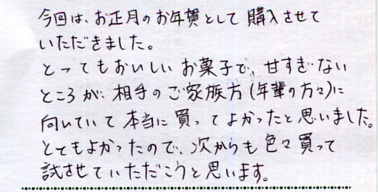 今回は、お正月のお年賀として購入させて
いただきました。
とってもおいしいお菓子で、甘すぎない
ところが、相手のご家族方(年輩の方々)に
向いていて本当に買ってよかったと思いました。
とてもよかったので、次からも色々買って
試させていただこうと思います。